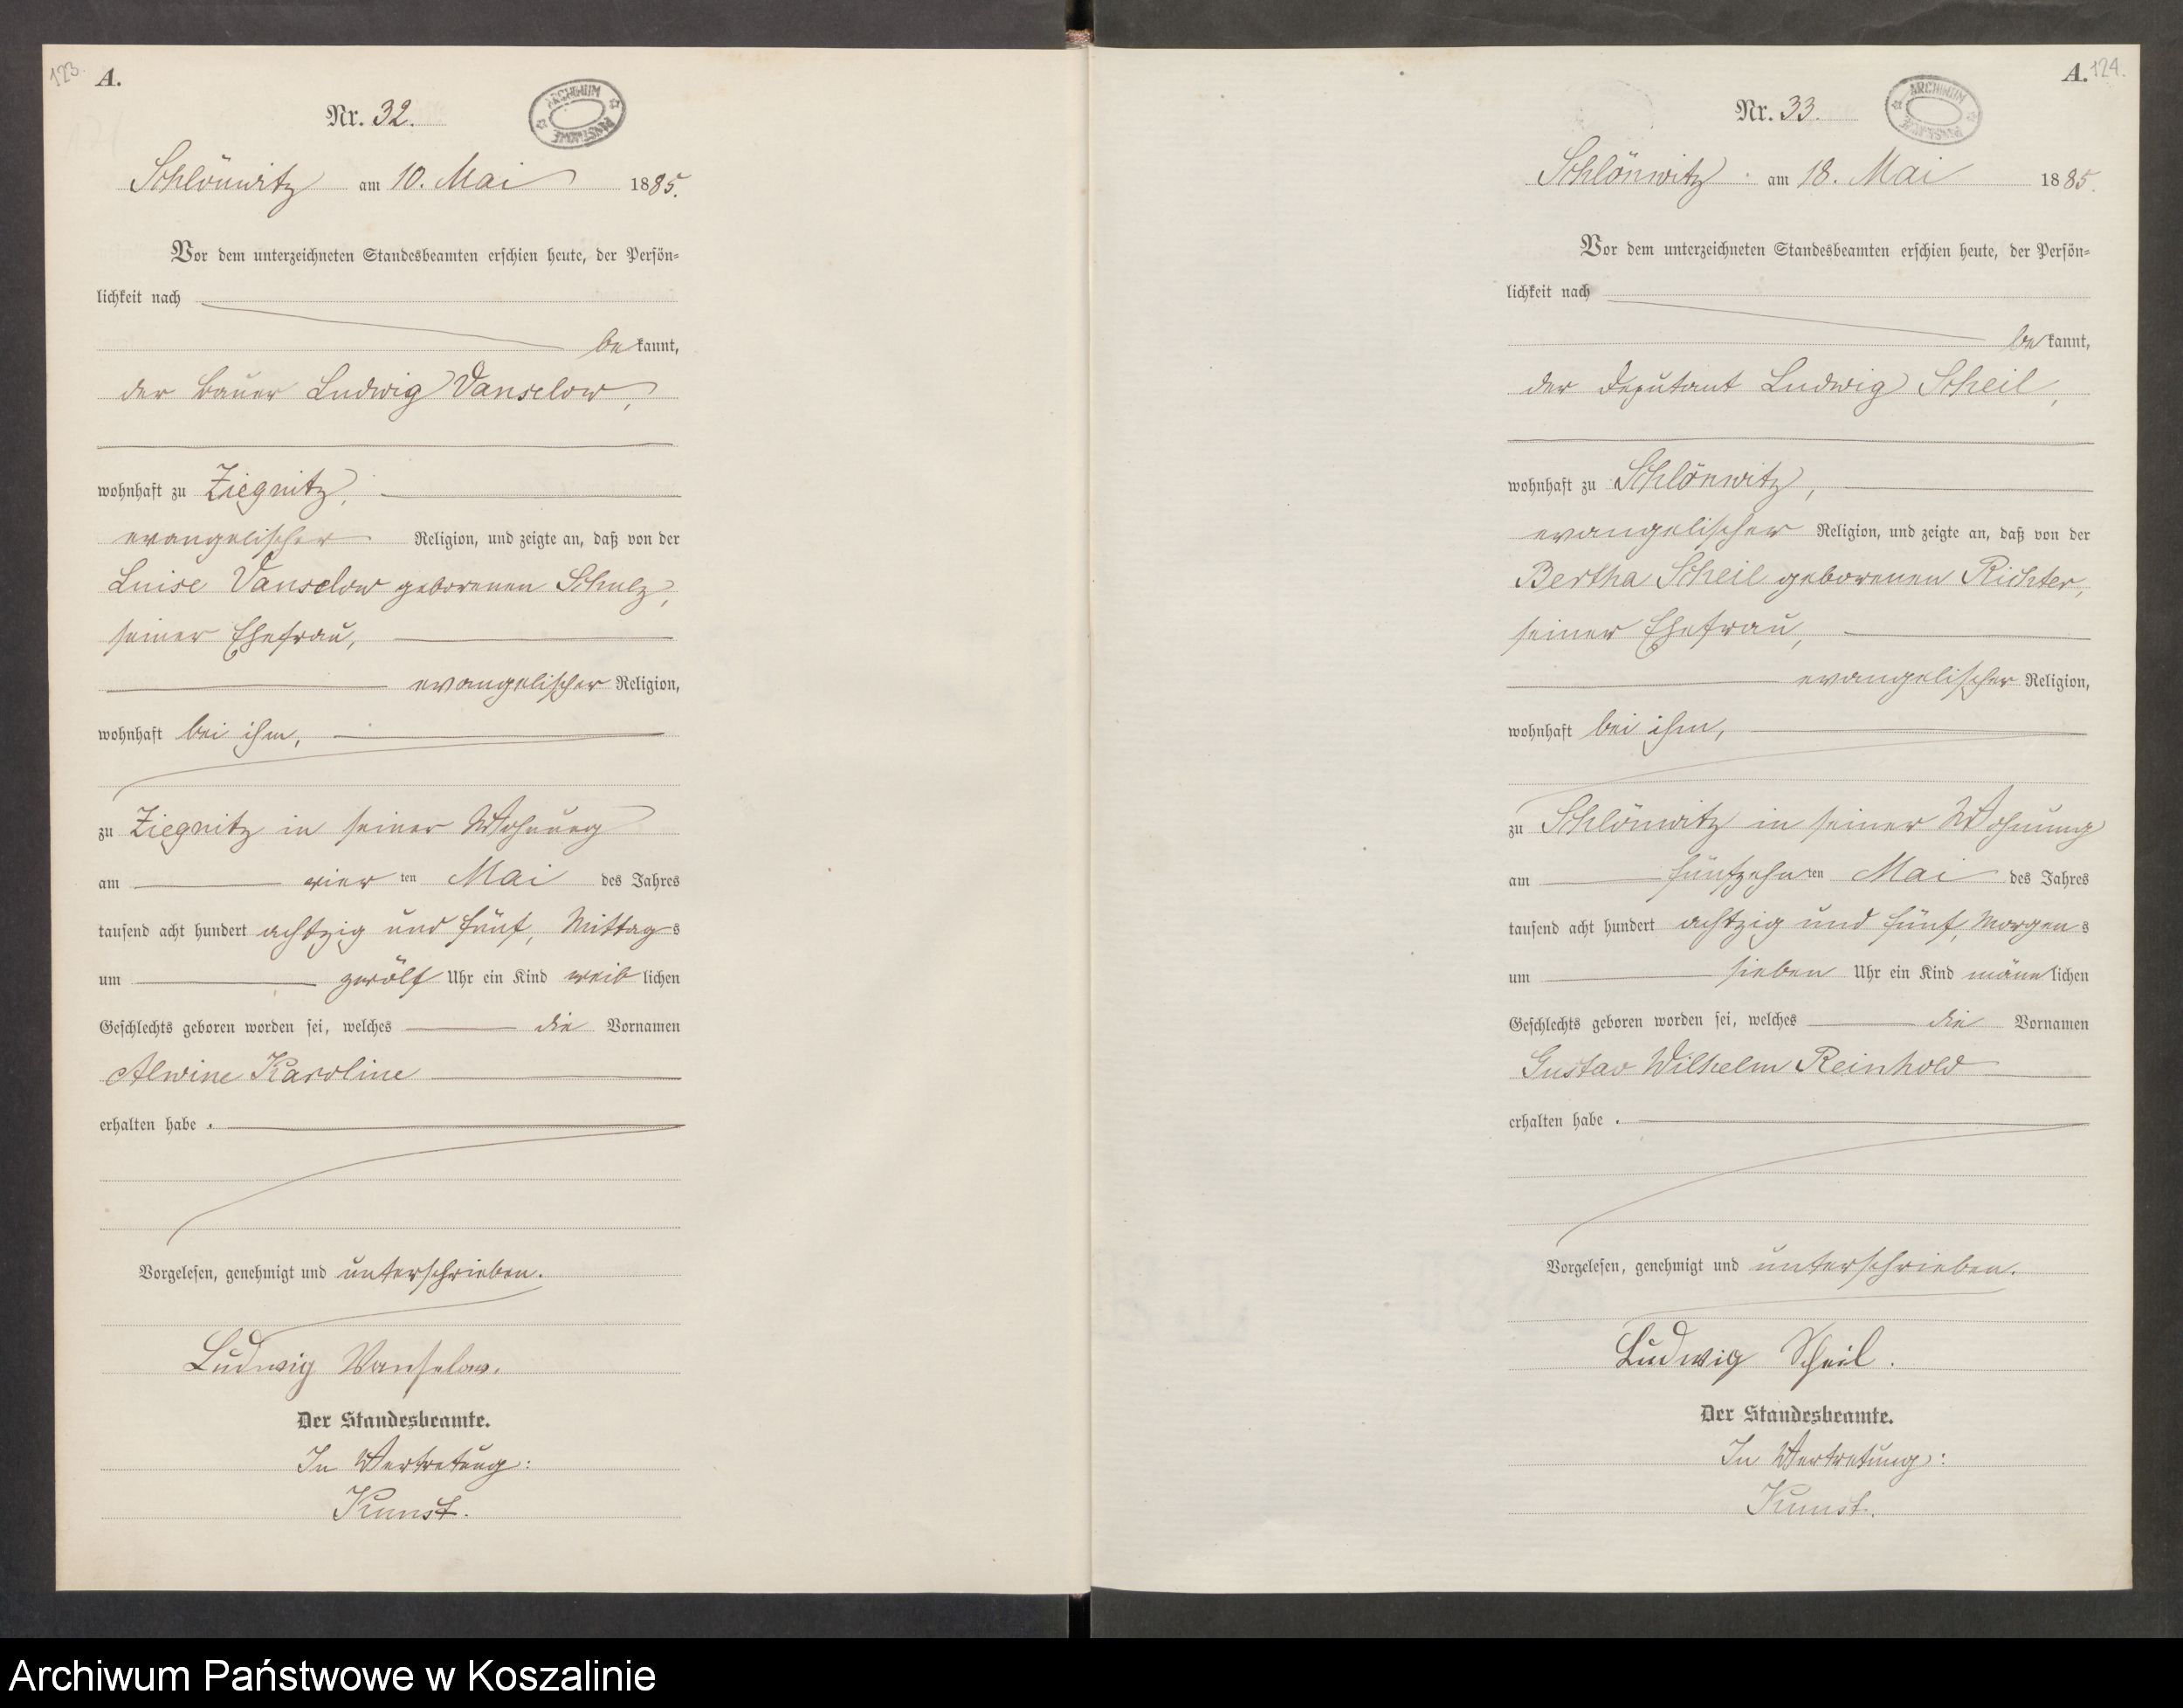 123.
A.
Nr. 32.
ARCHIWUM PAŃSTWOWE
Schlönwitz am 10. Mai 1885.
Vor dem unterzeichneten Standesbeamten erschien heute, der Persön-
lichkeit nach
bekannt,
der Bauer Ludwig Vanselow,
wohnhaft zu Ziegnitz,
evangelischer Religion, und zeigte an, daß von der
Luise Vanselow geborenen Schulz,
seiner Ehefrau,
evangelischer Religion,
wohnhaft bei ihm,
zu Ziegnitz in seiner Wohnung
am vierten Mai des Jahres
tausend acht hundert achtzig und fünf, Mittags
um zwölf Uhr ein Kind weiblichen
Geschlechts geboren worden sei, welches die Vornamen
Alwine Karoline
erhalten habe.
Vorgelesen, genehmigt und unterschrieben.
Ludwig Vanselow.
Der Standesbeamte.
In Vertretung:
Kunst.
A. 124.
Nr. 33.
ARCHIWUM PAŃSTWOWE
Schlönwitz am 18. Mai 1885.
Vor dem unterzeichneten Standesbeamten erschien heute, der Persön-
lichkeit nach
bekannt,
der Deputant Ludwig Scheil,
wohnhaft zu Schlönwitz,
evangelischer Religion, und zeigte an, daß von der
Bertha Scheil geborenen Richter,
seiner Ehefrau,
evangelischer Religion,
wohnhaft bei ihm,
zu Schlönwitz in seiner Wohnung
am fünfzehnten Mai des Jahres
tausend acht hundert achtzig und fünf, Morgens
um sieben Uhr ein Kind männlichen
Geschlechts geboren worden sei, welches die Vornamen
Gustav Wilhelm Reinhold
erhalten habe.
Vorgelesen, genehmigt und unterschrieben.
Ludwig Scheil.
Der Standesbeamte.
In Vertretung:
Kunst.
Archiwum Państwowe w Koszalinie